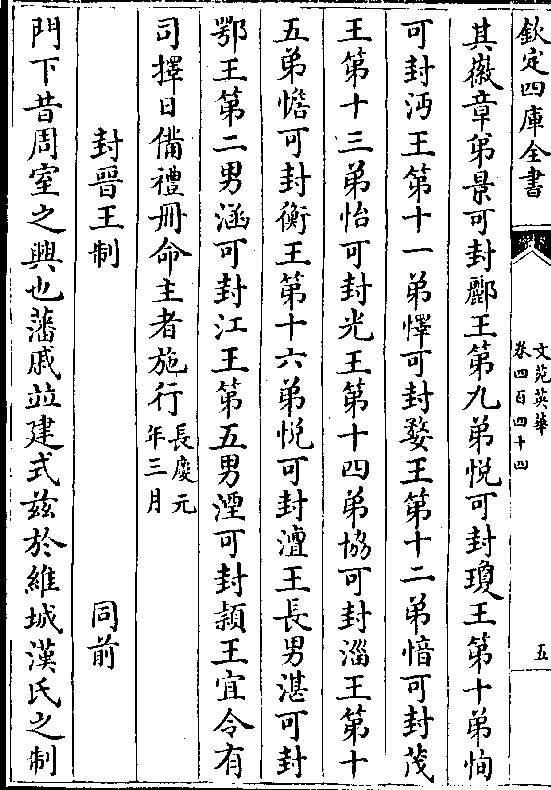 欽定四庫全書
文苑英華
卷四百四十四
五
其徽章弟景可封鄜王第九弟悅可封瓊王第十弟恂
可封沔王第十一弟懌可封婺王第十二弟愔可封茂
王第十三弟怡可封光王第十四弟協可封淄王第十
五弟憺可封衡王第十六弟悅可封澶王長男湛可封
鄂王第二男涵可封江王第五男湹可封頴王宜令有
司擇日備禮冊命主者施行長慶元
年三月
封晉王制
同前
門下昔周室之興也藩戚並建式兹於維城漢氏之制